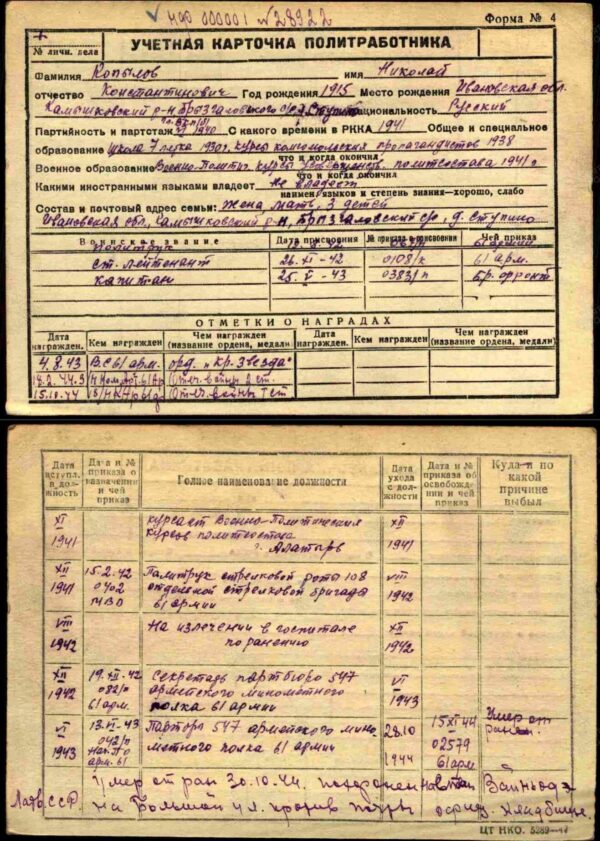 №28922
Форма № 4
№ личн. дела
УЧЕТНАЯ КАРТОЧКА ПОЛИТРАБОТНИКА
Фамилия Копылов имя Николай
отчество Константинович Год рождения 1915 Место рождения Ивановская обл.
Камешковский р-н Брызгаловского с/с д. Ступино Национальность Русский
Партийность и партстаж 1940 С какого времени в РККА 1941 Общее и специальное
образование школа 7 1930г. курсы комсомольских пропагандистов 1938
что и когда окончил
Военное образование Военно-Политич. курсы политсостава 1941 г
что и когда окончил
Какими иностранными языками владеет Не владеет
наимен. языков и степень знания—хорошо, слабо
Состав и почтовый адрес семьи: жена мать, 3 детей
Ивановская обл, Камешковский р-н, Брызгаловский с/с, д. Ступино
Воинское звание Дата присвоения № приказа о присвоении Чей приказ
политрук 61 армии
ст. лейтенант 26.XI-42 0108/к 61 арм.
капитан 25.V-43 0383/п Бр. фронт
ОТМЕТКИ О НАГРАДАХ
Дата награжден. Кем награжден Чем награжден (название ордена, медали) Дата награжден. Кем награжден Чем награжден (название ордена, медали)
4.8.43 ВС 61 арм. орд. „Кр. Звезда"
Отеч. войны 2 ст.
15.10.44 Отеч. войны 1 ст
Дата вступл. в должность Дата и № приказа о назначении и чей приказ Полное наименование должности Дата ухода с должности Дата и № приказа об освобождении и чей приказ Куда и по какой причине выбыл
XI 1941 курсант Военно-Политических курсов политсостава г. Алатырь XII 1941
XII 1941 15.2.42 0402 Политрук стрелковой роты 108 отдельной стрелковой бригады 61 армии VIII 1942
VIII 1942 На излечении в госпитале по ранению XII 1942
XII 1942 19.XII-42 082/п 61 арм. Секретарь партбюро 547 армейского минометного полка 61 армии VI 1943
VI 1943 13.VI-43 042/п Нач. ПО арм. 61 Парторг 547 армейского минометного полка 61 армии 28.10 1944 15.XI 44 02579 61 арм Умер от ран.
Умер от ран 30.10.44. похоронен на ст. Вайньодэ
Латв. ССР. на Большой ул. против кладбище.
ЦТ НКО. 5289—